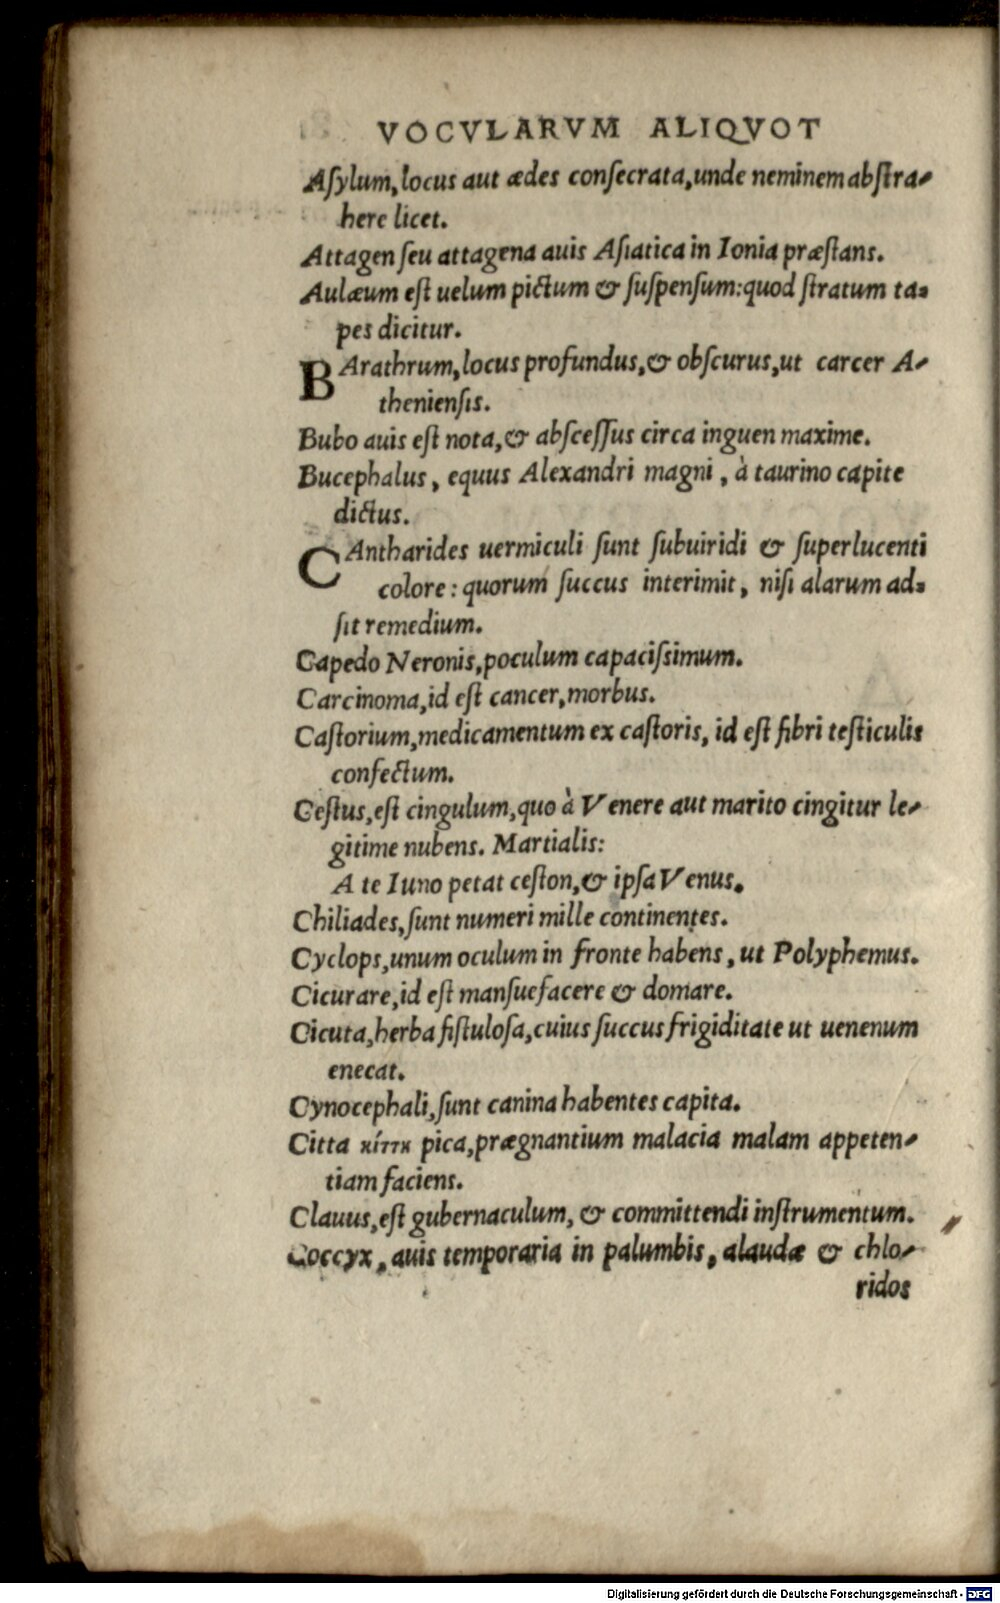 VOCVLARVM ALIQVOT
Aſylum, locus aut ædes conſecrata, unde neminem abſtra-
here licet.
Attagen ſeu attagena auis Aſiatica in Ionia præſtans.
Aulæum eſt uelum pictum & ſuſpenſum: quod ſtratum ta-
pes dicitur.
BArathrum, locus profundus, & obſcurus, ut carcer A-
thenienſis.
Bubo auis eſt nota, & abſceſſus circa inguen maxime.
Bucephalus, equus Alexandri magni, à taurino capite
dictus.
CAntharides uermiculi ſunt ſubuiridi & ſuperlucenti
colore: quorum ſuccus interimit, niſi alarum ad-
ſit remedium.
Capedo Neronis, poculum capaciſsimum.
Carcinoma, id eſt cancer, morbus.
Caſtorium, medicamentum ex caſtoris, id eſt fibri teſticulis
confectum.
Ceſtus, eſt cingulum, quo à Venere aut marito cingitur le-
gitime nubens. Martialis:
A te Iuno petat ceſton, & ipſa Venus.
Chiliades, ſunt numeri mille continentes.
Cyclops, unum oculum in fronte habens, ut Polyphemus.
Cicurare, id eſt manſuefacere & domare.
Cicuta, herba fiſtuloſa, cuius ſuccus frigiditate ut uenenum
enecat.
Cynocephali, ſunt canina habentes capita.
Citta κίττη pica, prægnantium malacia malam appeten-
tiam faciens.
Clauus, eſt gubernaculum, & committendi inſtrumentum.
Coccyx, auis temporaria in palumbis, alaudæ & chlo-
ridos
Digitalisierung gefördert durch die Deutsche Forschungsgemeinschaft - DFG